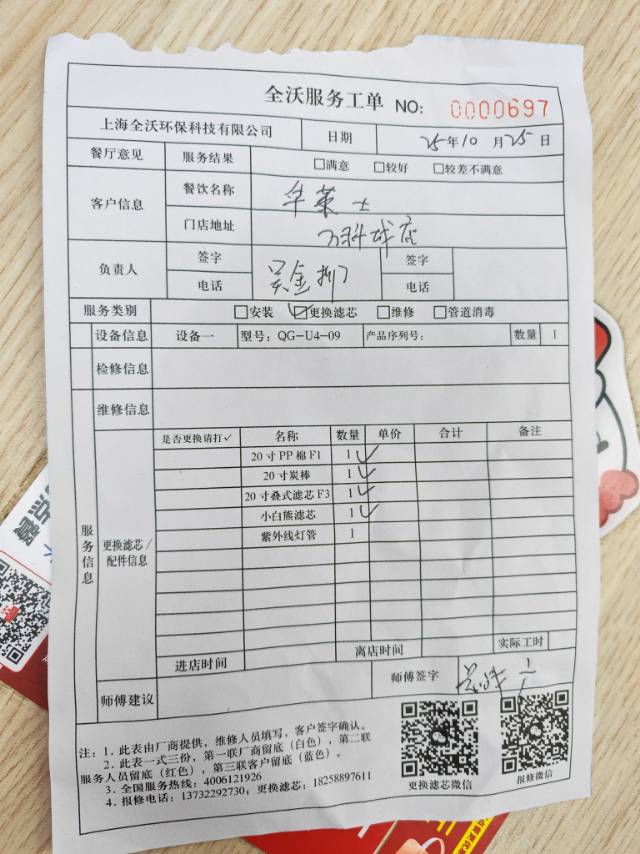 全沃服务工单 NO: 0000697
上海全沃环保科技有限公司 日期 25年10月25日
餐厅意见 服务结果 □满意 □较好 □较差不满意
客户信息 餐饮名称 华莱士
门店地址
负责人 签字 签字
电话 电话
服务类别 □安装 ☑更换滤芯 □维修 □管道消毒
设备信息 设备一 型号: QG-U4-09 产品序列号: 数量 1
检修信息
维修信息
服务信息 更换滤芯/配件信息 是否更换请打✓ 名称 数量 单价 合计 备注
20寸PP棉F1 1 ✓
20寸炭棒 1 ✓
20寸叠式滤芯F3 1 ✓
小白熊滤芯 1 ✓
紫外线灯管 1
进店时间 离店时间 实际工时
师傅建议 师傅签字
注: 1. 此表由厂商提供, 维修人员填写, 客户签字确认。
2. 此表一式三份, 第一联厂商留底(白色), 第二联
服务人员留底(红色), 第三联客户留底(蓝色)。
3. 全国服务热线: 4006121926
4. 报修电话: 13732292730; 更换滤芯: 18258897611
更换滤芯微信 报修微信